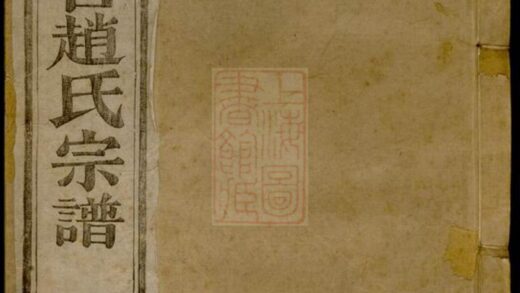 趙氏宗譜
上海圖
書館藏